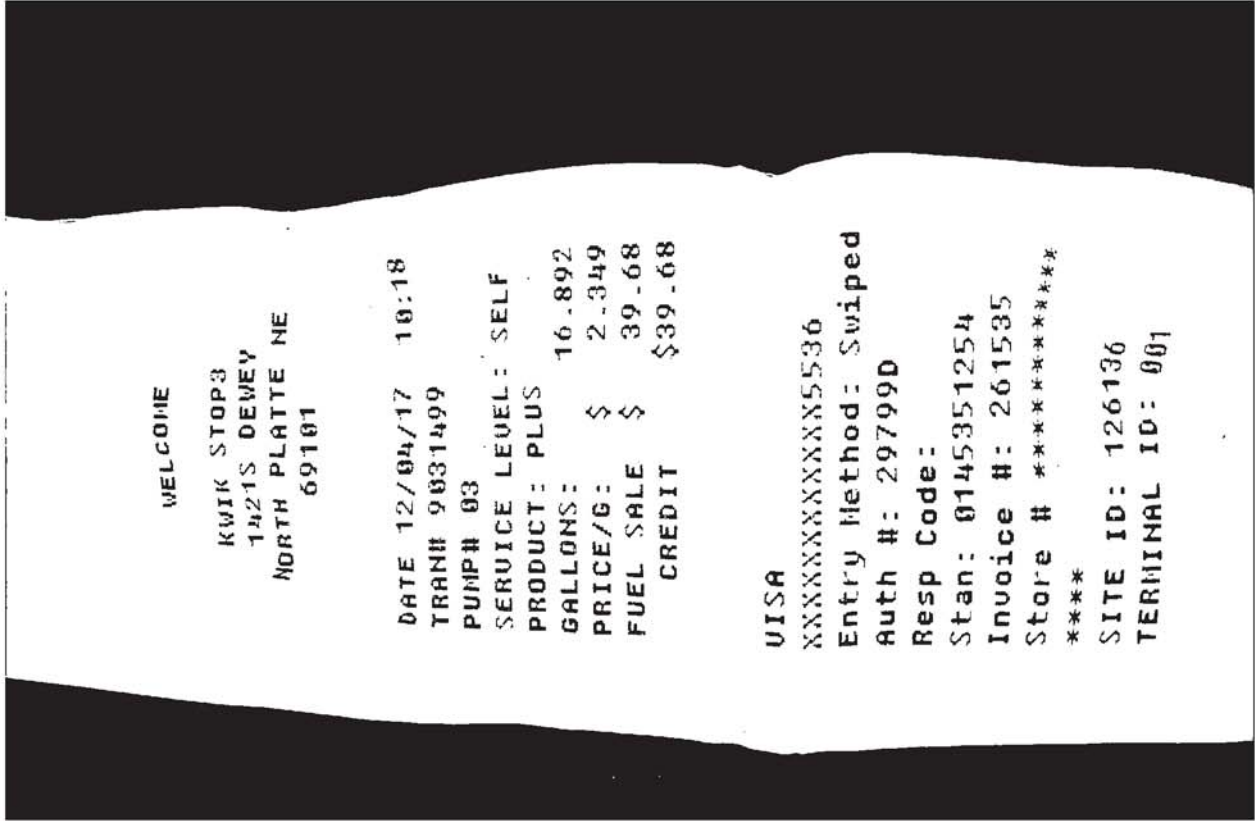 WELCOME
KWIK STOP3
1421S DEWEY
NORTH PLATTE NE
69101
DATE 12/04/17 10:18
TRAN# 9031499
PUMP# 03
SERVICE LEVEL: SELF
PRODUCT: PLUS
GALLONS: 16.892
PRICE/G: $ 2.349
FUEL SALE $ 39.68
CREDIT $39.68
VISA
XXXXXXXXXXXX5536
Entry Method: Swiped
Auth #: 29799D
Resp Code:
Stan: 0145351254
Invoice #: 261535
Store # ***************
****
SITE ID: 126136
TERMINAL ID: 001